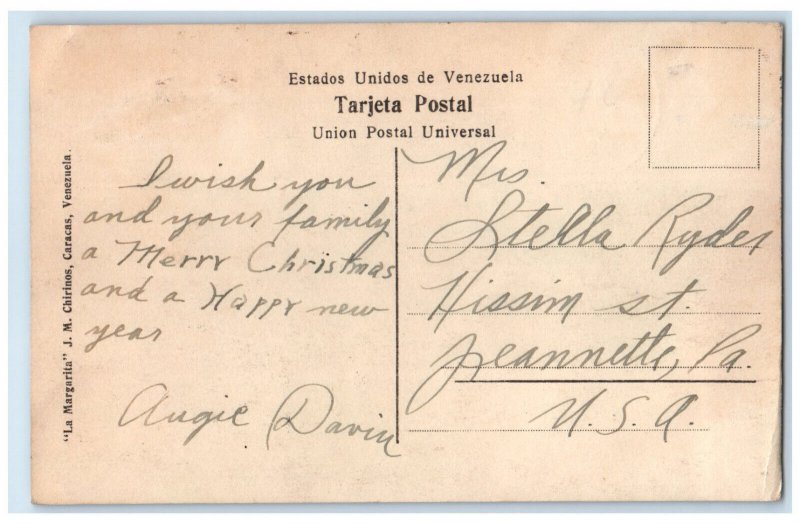 Estados Unidos de Venezuela
Tarjeta Postal
Union Postal Universal
"La Margarita" J. M. Chirinos, Caracas, Venezuela.
I wish you
and your family
a Merry Christmas
and a Happy new
year
Augie
Mrs.
Stella Ryder
st.
Jeannette, Pa.
U. S. A.